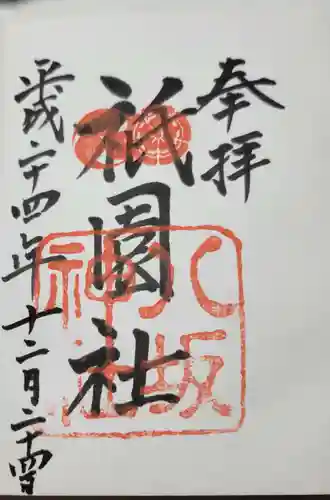 奉拝
祇園社
八坂神社
平成二十四年十二月二十四日